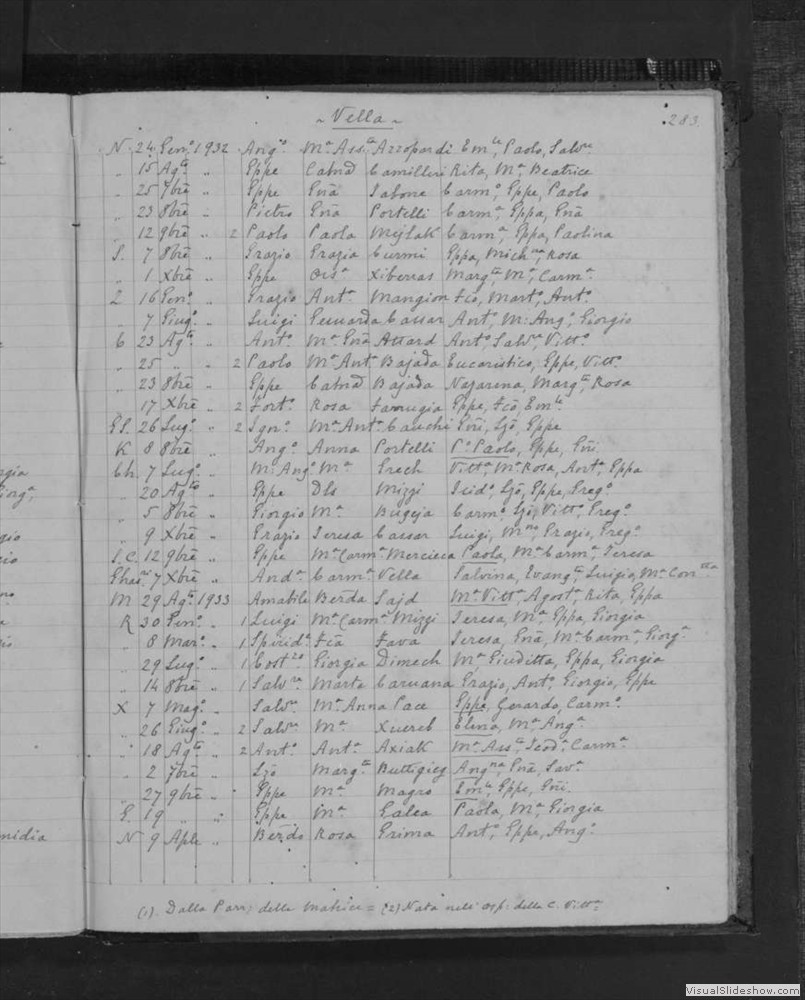 ~ Vella ~ 283.
N. 24 Gen.º 1932 Ang.º M.ª Ass.ta Azzopardi Em.le, Paolo, Salv.re
" 15 Ag.to " Gppe Catnd Camilleri Rita, M.ª Beatrice
" 25 7bre " Gppe Gnã Sabone Carm.º, Gppe, Paolo
" 23 8bre " Pietro Gnã Portelli Carm.ª, Gppa, Gnã
" 12 9bre " 2 Paolo Paola Mejlak Carm.ª, Gppa, Paolina
S. 7 8bre " Grazio Grazia Curmi Gppa, Mich.na, Rosa
" 1 Xbre " Gppe Ors.ª Xiberras Marg.ta, M.ª, Carm.ª
Z 16 Gen.º " Grazio Ant.ª Mangion Fcõ, Mart.º, Ant.º
" 7 Giug.º " Luigi Cassar Ant.º, M: Ang.º, Giorgio
C 23 Ag.to " Ant.º M.ª Gnã Attard Ant.º, Salv.re, Vitt.º
" 25 " " 2 Paolo M.ª Ant.ª Bajada Eucaristico, Gppe, Vitt.º
" 23 8bre " Gppe Catnd Bajada Nazarena, Marg.ta, Rosa
" 17 Xbre " 2 Fort.º Rosa Farrugia Gppe, Fcõ, Em.le
26 Lug.º " 2 Ign.º M.ª Ant.ª Cauchi Gni, Ljõ, Gppe
K 8 8bre " Ang.º Anna Portelli P.º Paolo, Gppe, Gni
Ch. 7 Lug.º " M: Ang.º M.ª Grech Vitt.ª M.ª Rosa, Ant.ª, Gppa
" 20 Ag.to " Gppe Dls Mizzi Ljõ, Gppe, Greg.º
" 5 8bre " Giorgio M.ª Bugeja Carm.º, Ljõ, Vitt.º, Greg.º
" 9 Xbre " Grazio Teresa Cassar Luigi, M.no, Grazio, Greg.º
S.C. 12 9bre " Gppe M.ª Carm.ª Mercieca Paola, M.ª Carm.ª, Teresa
Ghas.ri 7 Xbre " And.ª Carm.ª Vella Salvina, Evang.ta, Luigia, M.ª Con.tta
M 29 Ag.to 1933 Amabile Berda Sajd M.ª Vitt.ª, Agost.ª, Rita, Gppa
R 30 Gen.º " 1 Luigi M.ª Carm.ª Mizzi Teresa, M.ª, Gppa, Giorgia
" 8 Mar.º " 1 Spirid.e Fcã Fava Teresa, Gnã, M.ª Carm.ª, Giorg.ª
" 29 Lug.º " 1 Cost.zo Giorgia Dimech M.ª Giuditta, Gppa, Giorgia
" 14 8bre " 1 Salv.re Marta Caruana Grazio, Ant.º, Giorgio, Gppe
X 7 Mag.º " Salv.re M.ª Anna Pace Gppe, Gerardo, Carm.º
" 26 Giug.º " 2 Salv.re M.ª Xuereb Elena, M.ª, Ang.ª
" 18 Ag.to " 2 Ant.º Ant.ª Axiak M.ª Ass.ta, Teod.ª, Carm.ª
" 2 7bre " Ljõ Marg.ta Buttigieg Ang.na, Gnã, Sav.ª
" 27 9bre " Gppe M.ª Magro Em.le, Gppe, Gni
G. 19 " " Gppe M.ª Galea Paola, M.ª, Giorgia
N 9 Aple " Berdo Rosa Grima Ant.º, Gppe, Ang.º
(1) Dalla Parr: della Matrice = (2) Nata nell' Osp: della C. Vitt.ª
VisualSlideshow.com